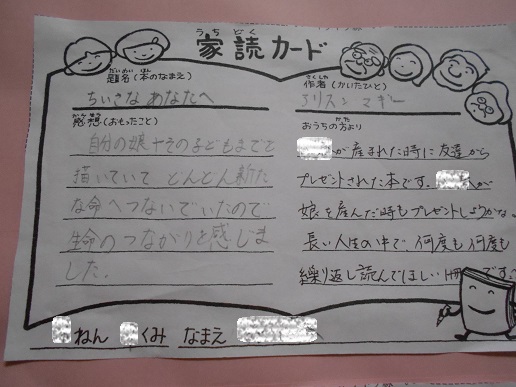 うちどく
家読カード
だいめい ほん
題名(本のなまえ)
ちいさな あなたへ
さくしゃ
作者(かいたひと)
アリスン マギー
かんそう
感想(おもったこと)
自分の娘+その子どもまでを
描いていて どんどん新た
な命へつないでいたので
生命のつながりを感じま
した。
かた
おうちの方より
が産まれた時に友達から
プレゼントされた本です。 が
娘を産んだ時もプレゼントしようかな。
長い人生の中で、何度も何度も
繰り返し読んでほしい1冊です。
ねん くみ なまえ